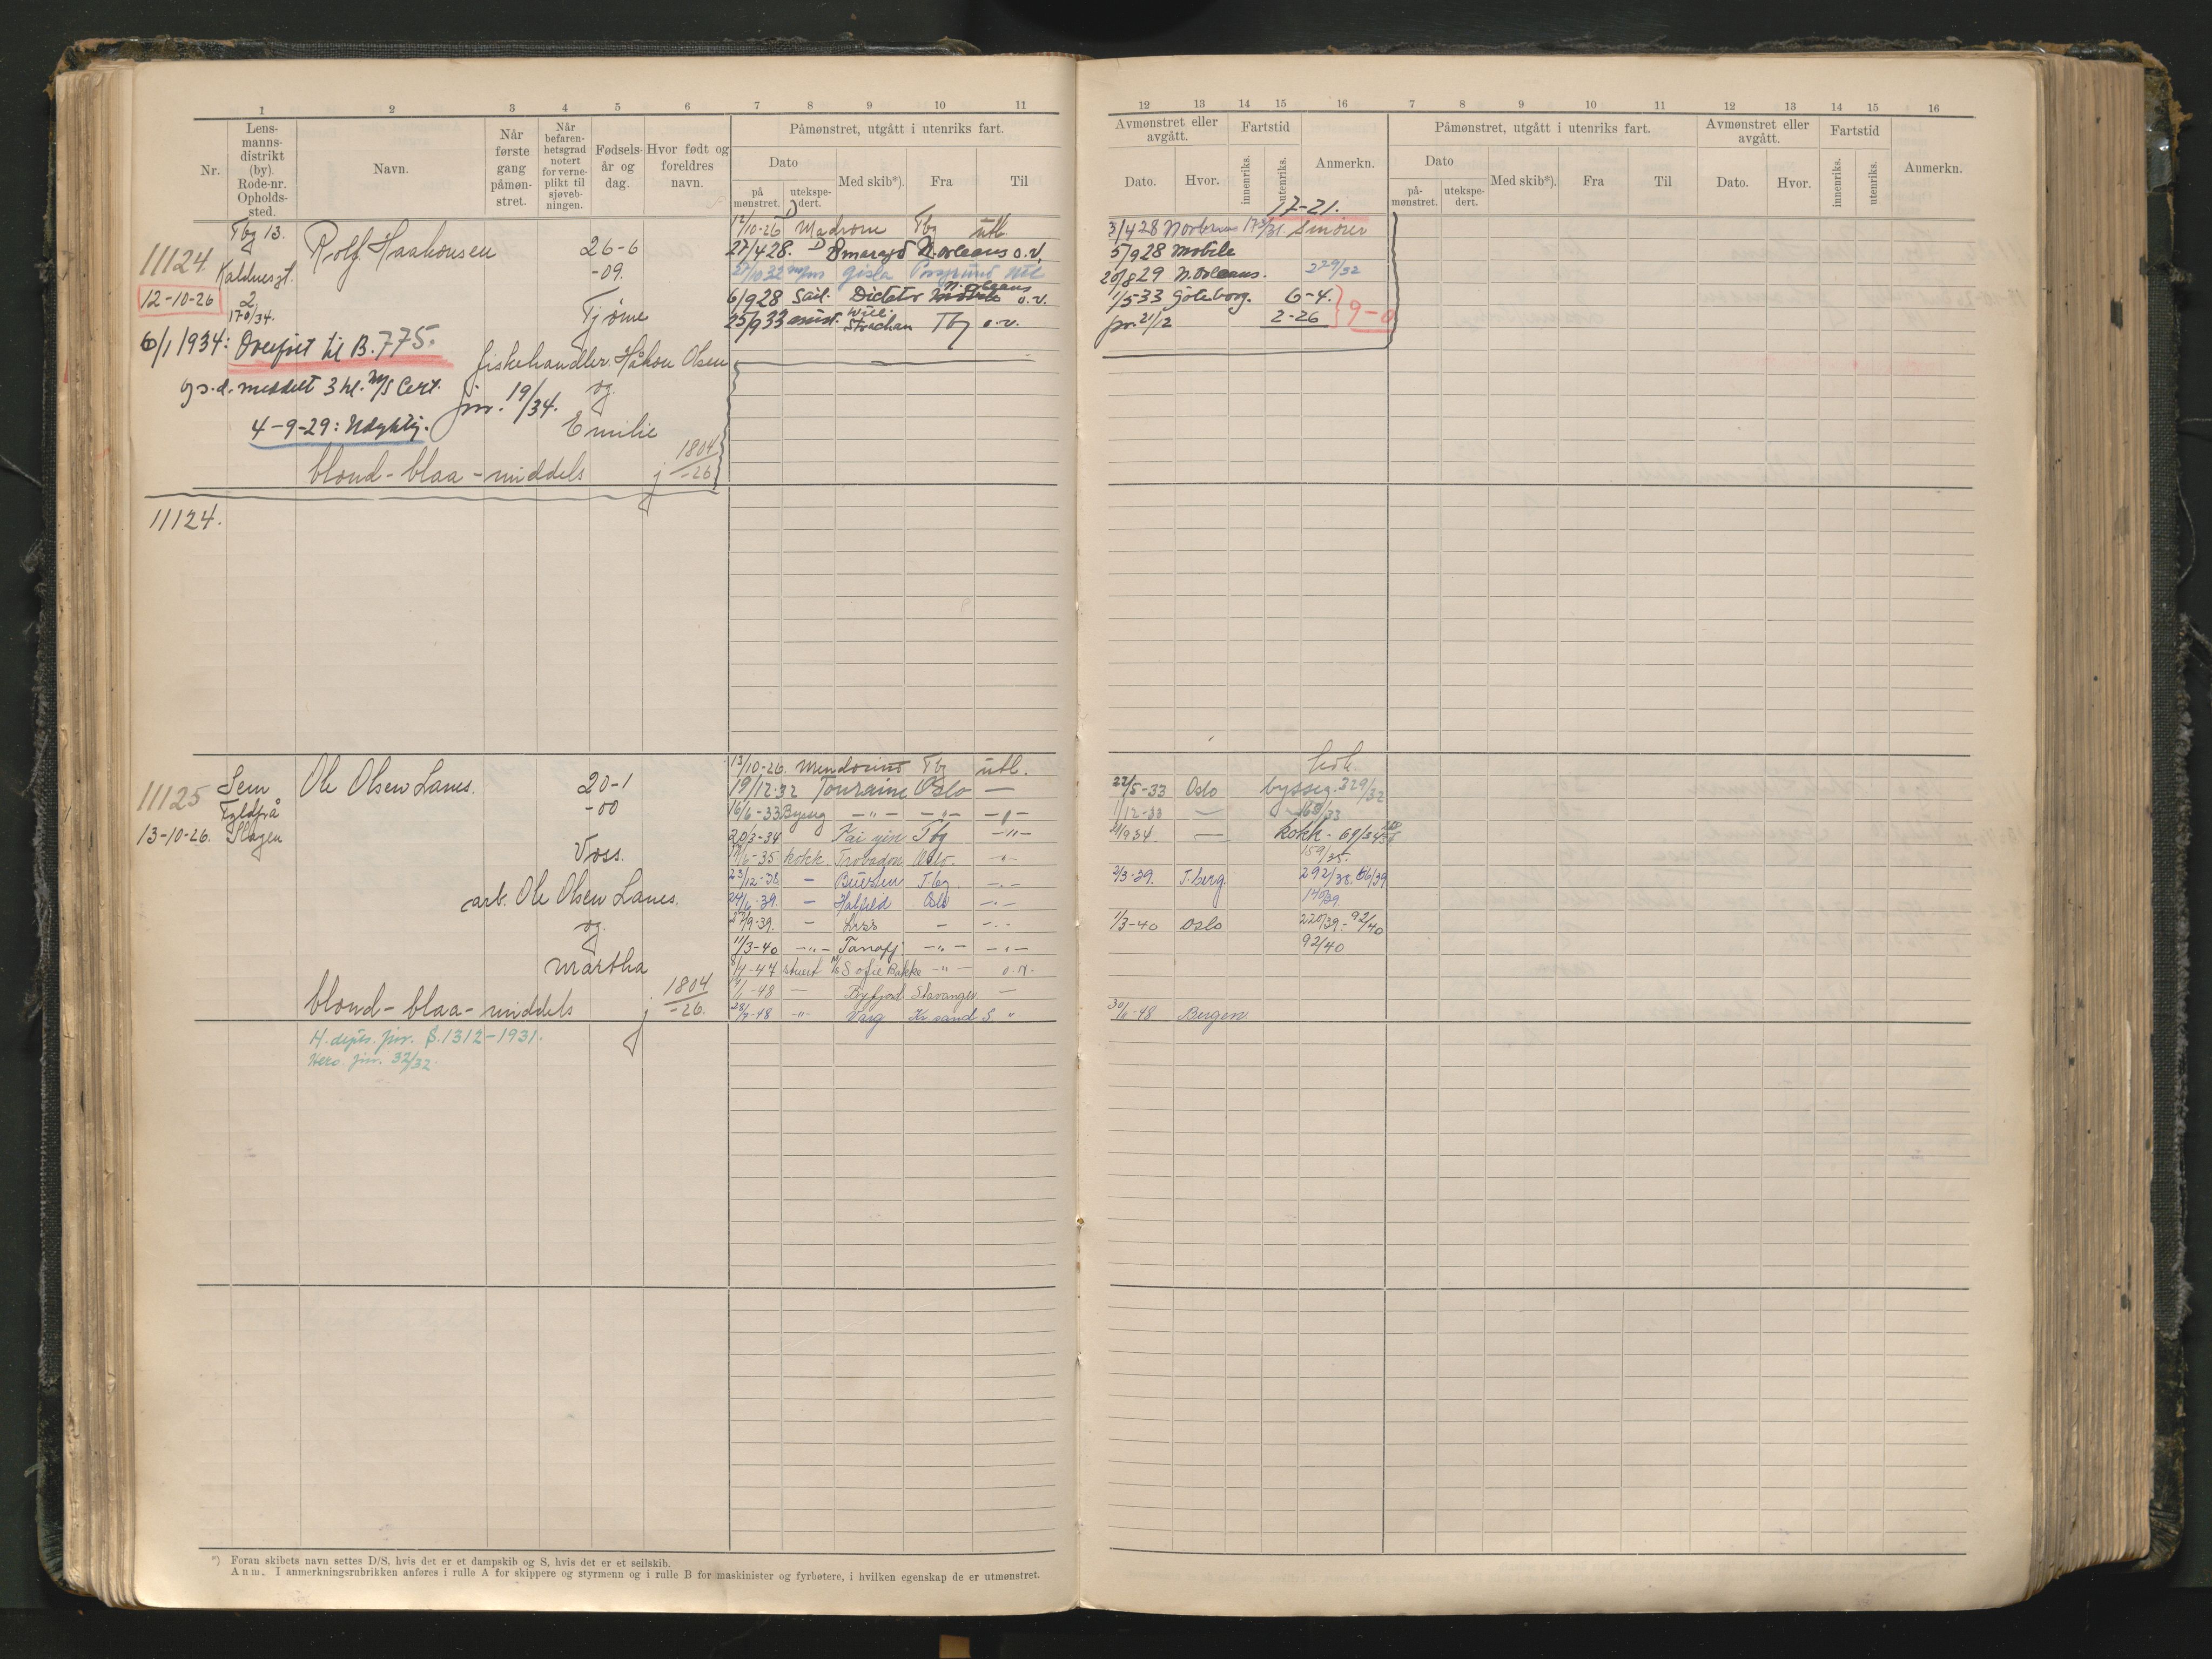 1 2 3 4 5 6 7 8 9 10 11
Nr.
Lens-
manns-
distrikt
(by).
Rode-nr.
Opholds-
sted.
Navn.
Når
første
gang
påmøn-
stret.
Når
befaren-
hetsgrad
notert
for verne-
plikt til
sjøveb-
ningen.
Fødsels-
år og
dag.
Hvor født og
foreldres
navn.
Påmønstret, utgått i utenriks fart.
Dato
på
mønstret.
utekspe-
dert.
Med skib*).
Fra
Til
11124.
12-10-26
Tbg 13.
Kaldnesgt.
2
170/34.
Rolf Haakonsen
26-6
-09.
Tjøme
fiskehandler Håkon Olsen
og
Emilie
6/1 1934: Overført til B. 775.
g s.d. meddelt 3 kl. M/S Cert.
jnr. 19/34.
4-9-29: Udyktig.
blond - blaa - middels
j 1804/-26
12/10-26 D Madrone Tbg utl.
27/4 28. D Smaragd N. Orleans o.v.
27/10 32 Gisla Porsgrund utl
6/9 28 Dictator N. Orleans o.v.
25/9 33 assist. Will. Strachan Tbg o.v.
11124.
11125
13-10-26.
Sem
Slagen
Ole Olsen Lanes.
20-1
-00
Voss.
arb. Ole Olsen Lanes.
og
Martha
blond - blaa - middels
j 1804/-26.
H. depts. jnr. S. 1312-1931.
jnr. 32/32.
13/10-26. Mendocino Tbg utl.
19/12 32 Touraine Oslo —
16/6-33 Bysseg -"- -"- -"-
20/3-34 Kai ying Tbg -"-
6-35 kokk. Trobador Oslo. -"-
23/12-38 — T.bg. -.-
24/6-39. — Oslo -.-
27/9-39. — — -.-
11/3-40 -"- Tanafj. -"- -"-
8/4-47 stuert M/S Sofie Bakke -"- o.v.
1-48 — Byfjord Stavanger —
28/-48 -"- Varg Kr.sand S. "
*) Foran skibets navn settes D/S, hvis det er et dampskib og S, hvis det er et seilskib.
Anm. I anmerkningsrubrikken anføres i rulle A for skippere og styrmenn og i rulle B for maskinister og fyrbøtere, i hvilken egenskap de er utmønstret.
12 13 14 15 16 7 8 9 10 11 12 13 14 15 16
Avmønstret eller
avgått.
Dato.
Hvor.
Fartstid
innenriks.
utenriks.
Anmerkn.
Påmønstret, utgått i utenriks fart.
Dato
på-
mønstret.
utekspe-
dert.
Med skib*).
Fra
Til
Avmønstret eller
avgått.
Dato.
Hvor.
Fartstid
innenriks.
utenriks.
Anmerkn.
17-21.
3/4 28 Smører
5/9 28 Mobile
20/8 29 N. Orleans. 229/32
1/5 33 Göteborg. 6-4.
pr. 21/12 2-26
9-0
kok.
22/5-33 Oslo bysseg. 329/32
1/12-33 — 168/33
21/9 34 — kokk - 69/34
159/35.
2/3-39. T.berg. 292/38. 56/39
140/39
1/3-40 Oslo 220/39.- 92/40
92/40
30/-48 Bergen.